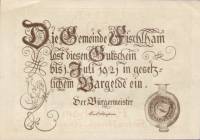 Die Gemeinde Fischlham
löst diesen Gutschein
bis 1. Juli 1921 in gesetz-
lichem Bargelde ein.
Der Bürgermeister